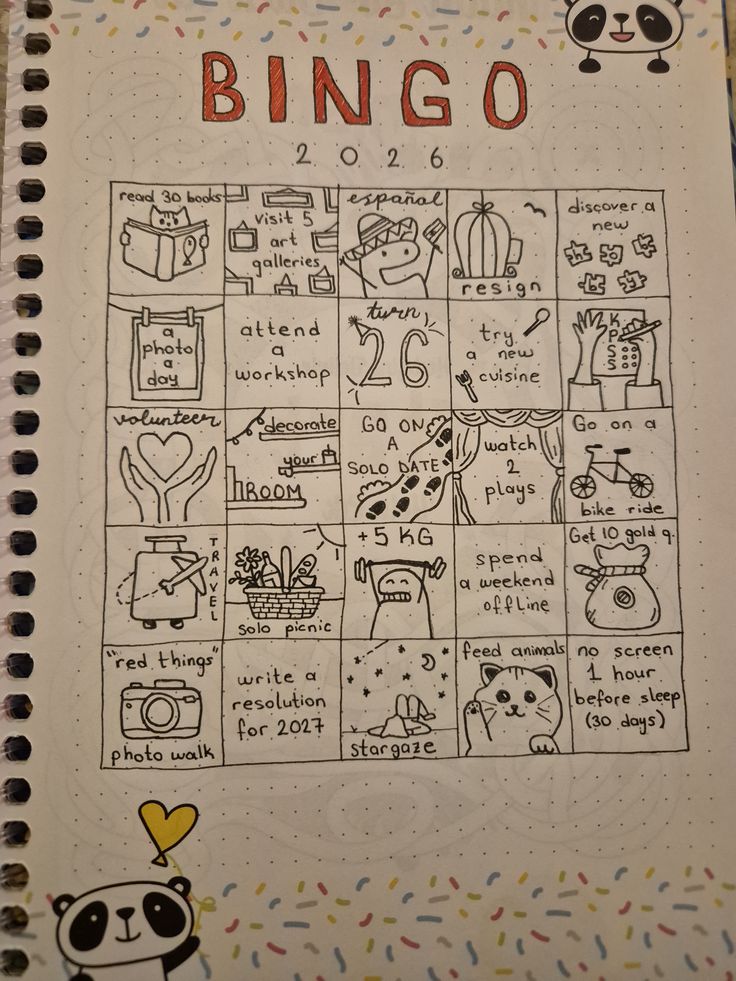 BINGO
2026
read 30 books
visit 5
art
galleries
español
resign
discover a
new
ho
b
by
a
photo
a
day
attend
a
workshop
turn
26
try
a new
cuisine
K
P
S
S
volunteer
decorate
your
ROOM
GO ON
A
SOLO DATE
watch
2
plays
Go on a
bike ride
TRAVEL
solo picnic
+5 KG
spend
a weekend
offline
Get 10 gold g.
"red things"
photo walk
write a
resolution
for 2027
stargaze
feed animals
no screen
1 hour
before sleep
(30 days)